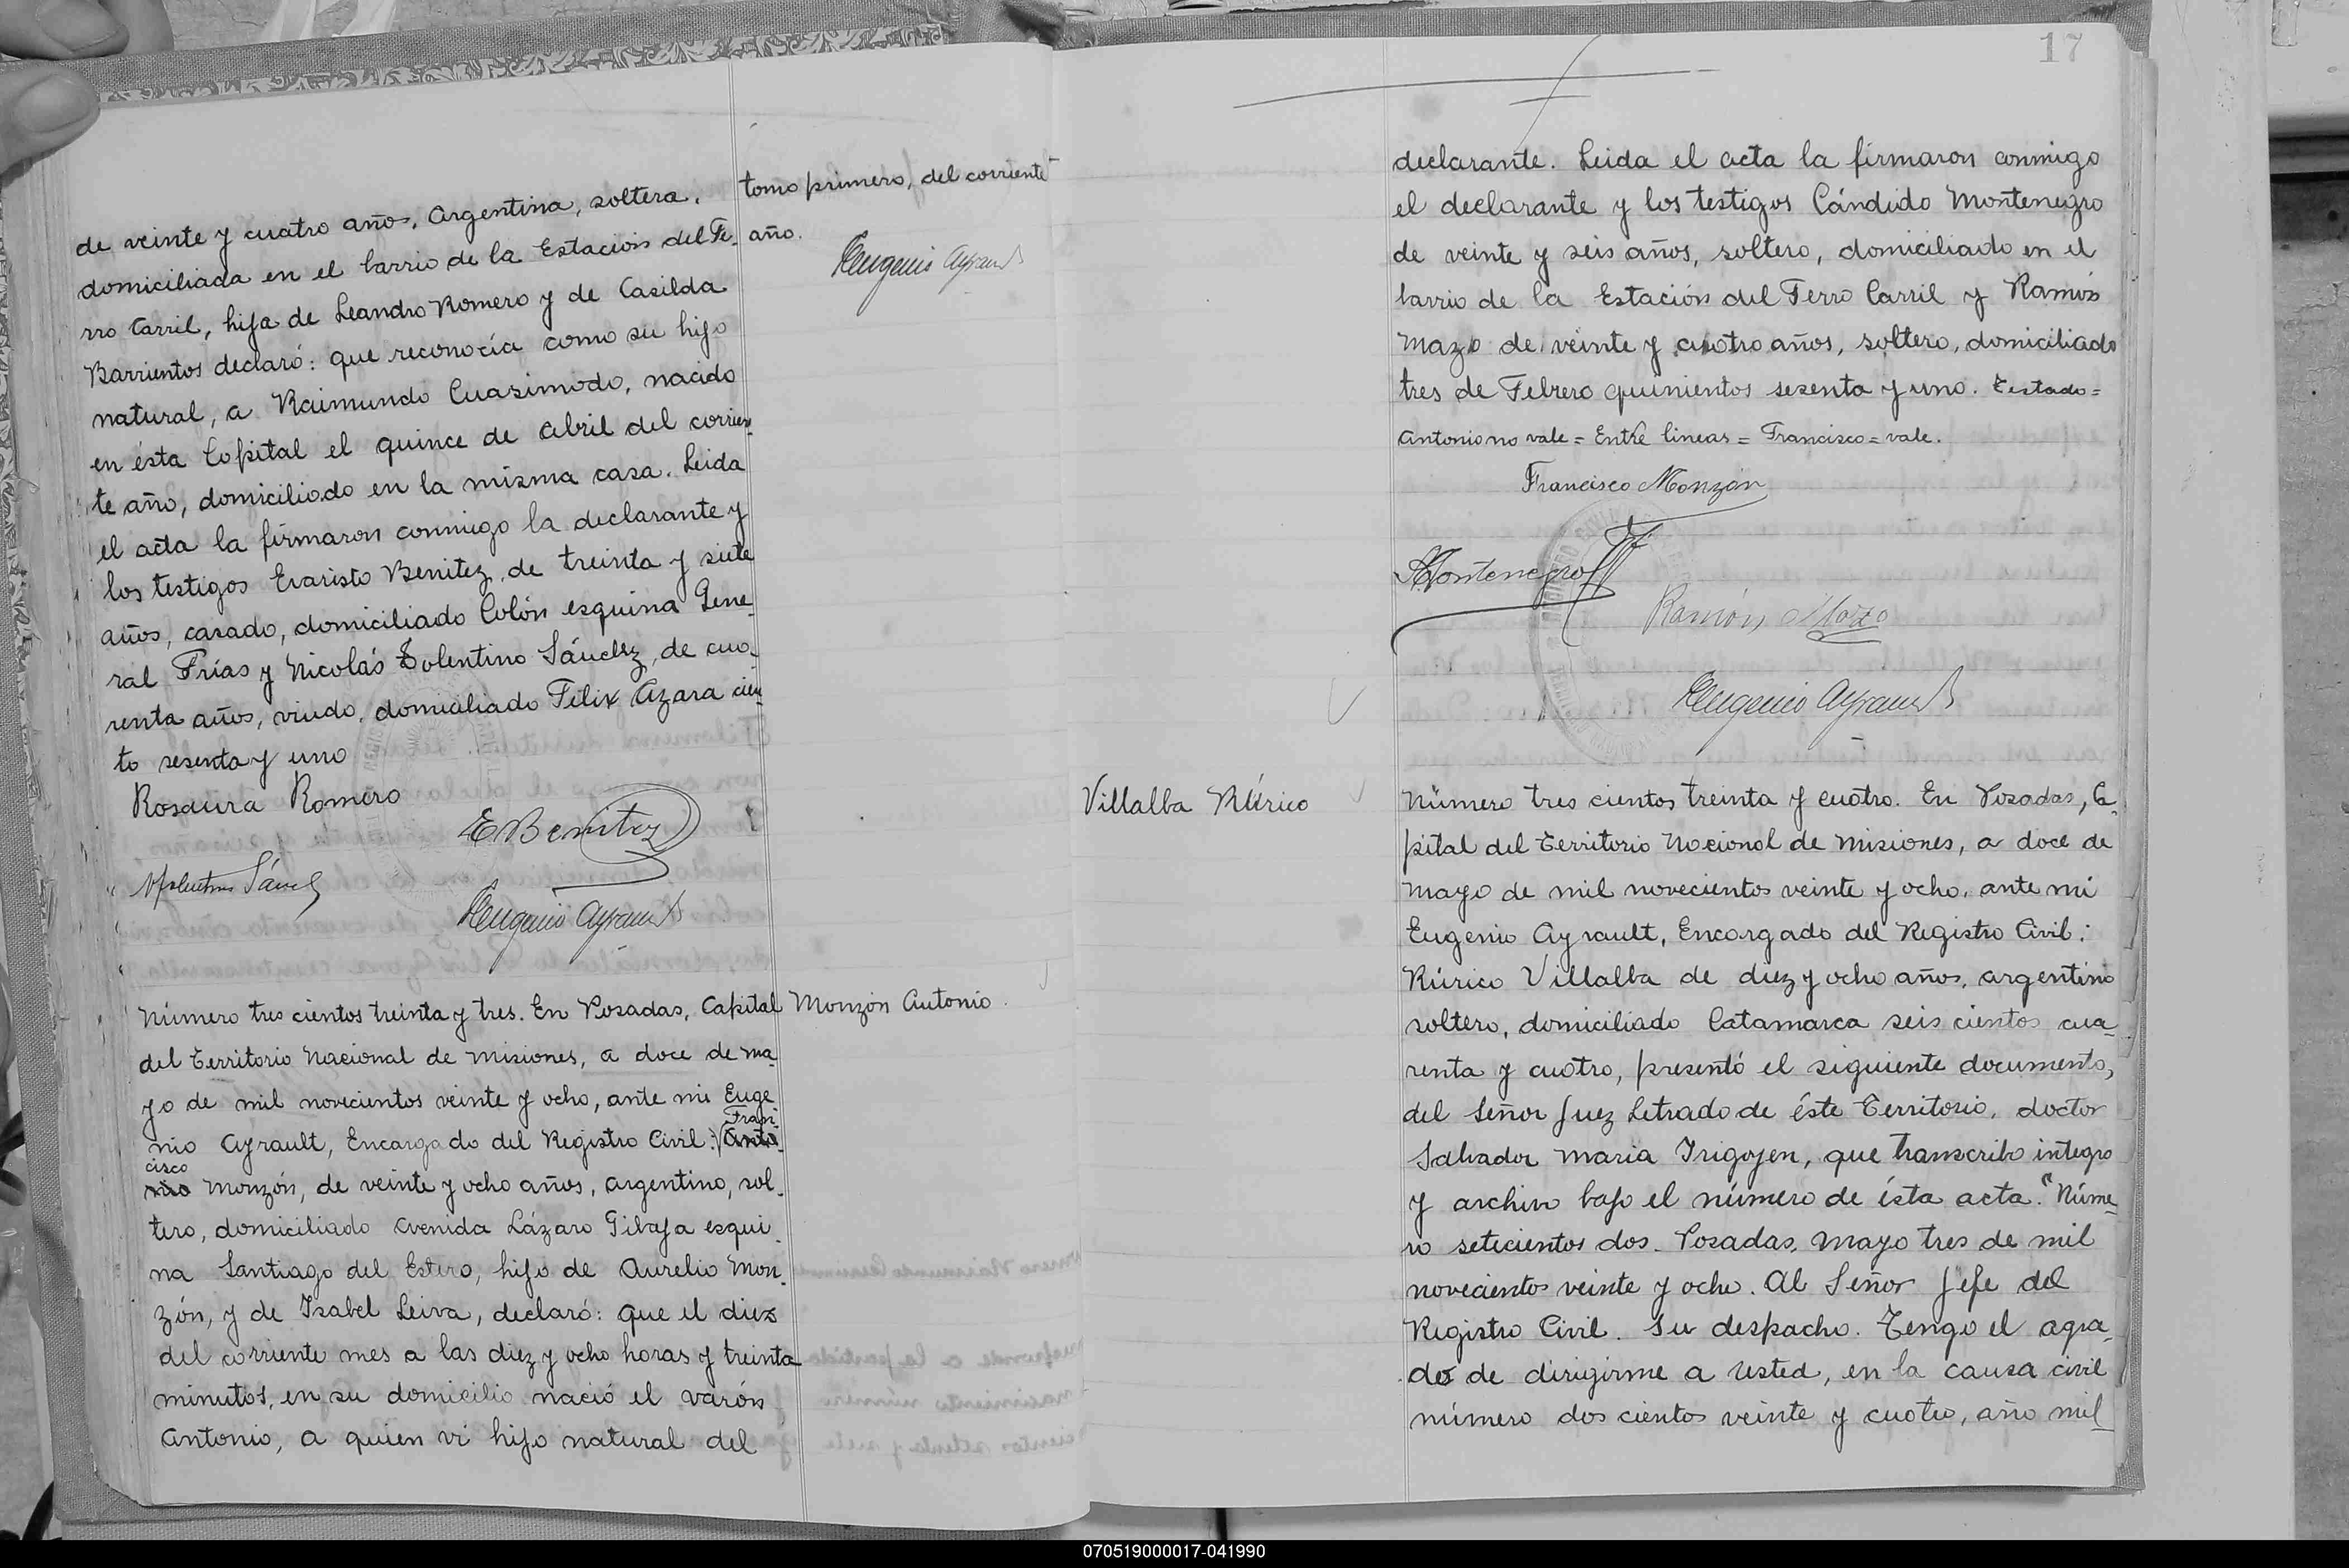 de veinte y cuatro años, Argentina, soltera,
domiciliada en el barrio de la Estación del Fe-
rro Carril, hija de Leandro Romero y de Casilda
Barrientos declaró: que reconocía como su hijo
natural, a Raimundo Cuasimodo, nacido
en ésta Capital el quince de abril del corrien-
te año, domiciliado en la misma casa. Leida
el acta la firmaron conmigo la declarante y
los testigos Evaristo Benitez, de treinta y siete
años, casado, domiciliado Colón esquina Gene-
ral Frías y Nicolás Tolentino Sánchez, de cua-
renta años, viudo, domiciliado Félix Azara cien-
to sesenta y uno
Rosaura Romero
E Benitez
Eugenio Ayrault
tomo primero, del corriente
año.
Eugenio Ayrault
Número tres cientos treinta y tres. En Posadas, Capital
Monzón Antonio
del Territorio Nacional de Misiones, a doce de ma-
yo de mil novecientos veinte y ocho, ante mi Euge
Fran-
nio Ayrault, Encargado del Registro Civil: Anto-
cisco
nio Monzón, de veinte y ocho años, argentino, sol-
tero, domiciliado Avenida Lázaro Gibaja esqui-
na Santiago del Estero, hijo de Aurelio Mon-
zón, y de Isabel Leiva, declaró: que el diez
del corriente mes a las diez y ocho horas y treinta
minutos, en su domicilio nació el varón
Antonio, a quien vi hijo natural del
17
declarante. Leida el acta la firmaron conmigo
el declarante y los testigos Cándido Montenegro
de veinte y seis años, soltero, domiciliado en el
barrio de la Estación del Ferro Carril y Ramón
Mazo de veinte y cuatro años, soltero, domiciliado
tres de Febrero quinientos sesenta y uno. Testado=
Antonio no vale = Entre lineas = Francisco = vale.
Francisco Monzón
Montenegro
Ramón Mazo
Eugenio Ayrault
Villalba Rúrico
Número tres cientos treinta y cuatro. En Posadas, Ca-
pital del Territorio Nacional de Misiones, a doce de
mayo de mil novecientos veinte y ocho, ante mi
Eugenio Ayrault, Encargado del Registro Civil:
Rúrico Villalba de diez y ocho años, argentino
soltero, domiciliado Catamarca seis cientos cua-
renta y cuatro, presentó el siguiente documento,
del Señor Juez Letrado de éste Territorio, doctor
Salvador Maria Irigoyen, que transcribo integro
y archivo bajo el número de ésta acta. "Núme-
ro setecientos dos. Posadas, Mayo tres de mil
novecientos veinte y ocho. Al Señor Jefe del
Registro Civil. Su despacho. Tengo el agra-
do de dirigirme a Usted, en la causa civil
número dos cientos veinte y cuatro, año mil
070519000017-041990